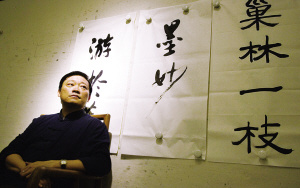 巢林一枝
墨妙
游於